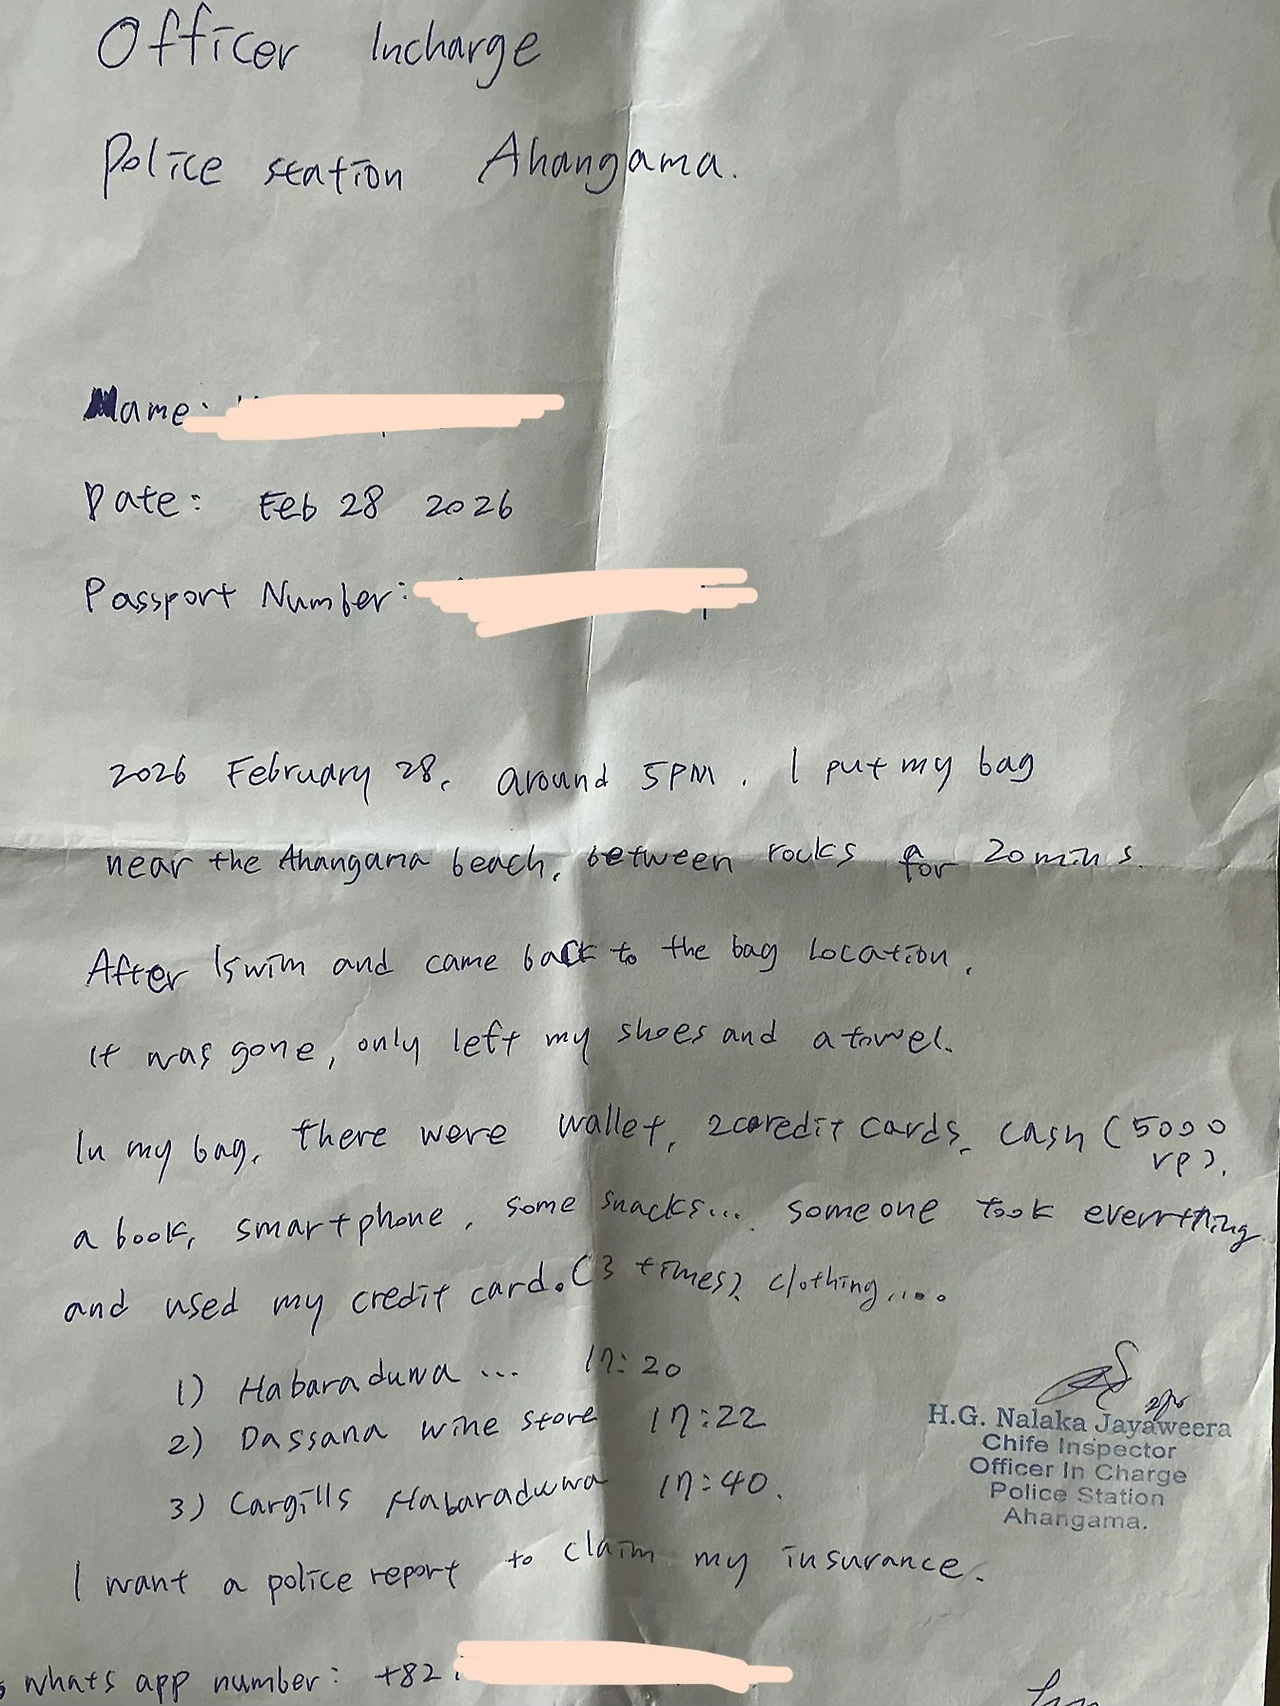 Officer Incharge
Police station Ahangama.
Name:
Date: Feb 28 2026
Passport Number:
2026 February 28, around 5PM. I put my bag
near the Ahangama beach, between rocks for 20 mins.
After I swim and came back to the bag location,
it was gone, only left my shoes and a towel.
In my bag, there were wallet, 2 credit cards, cash (5000
rp),
a book, smartphone, some snacks... someone took everything
and used my credit card. (3 times) clothing.....
1) Habaraduwa ... 17:20
2) Dassana wine store 17:22
3) Cargills Habaraduwa 17:40.
H.G. Nalaka Jayaweera
Chife Inspector
Officer In Charge
Police Station
Ahangama.
I want a police report to claim my insurance.
whats app number: +82